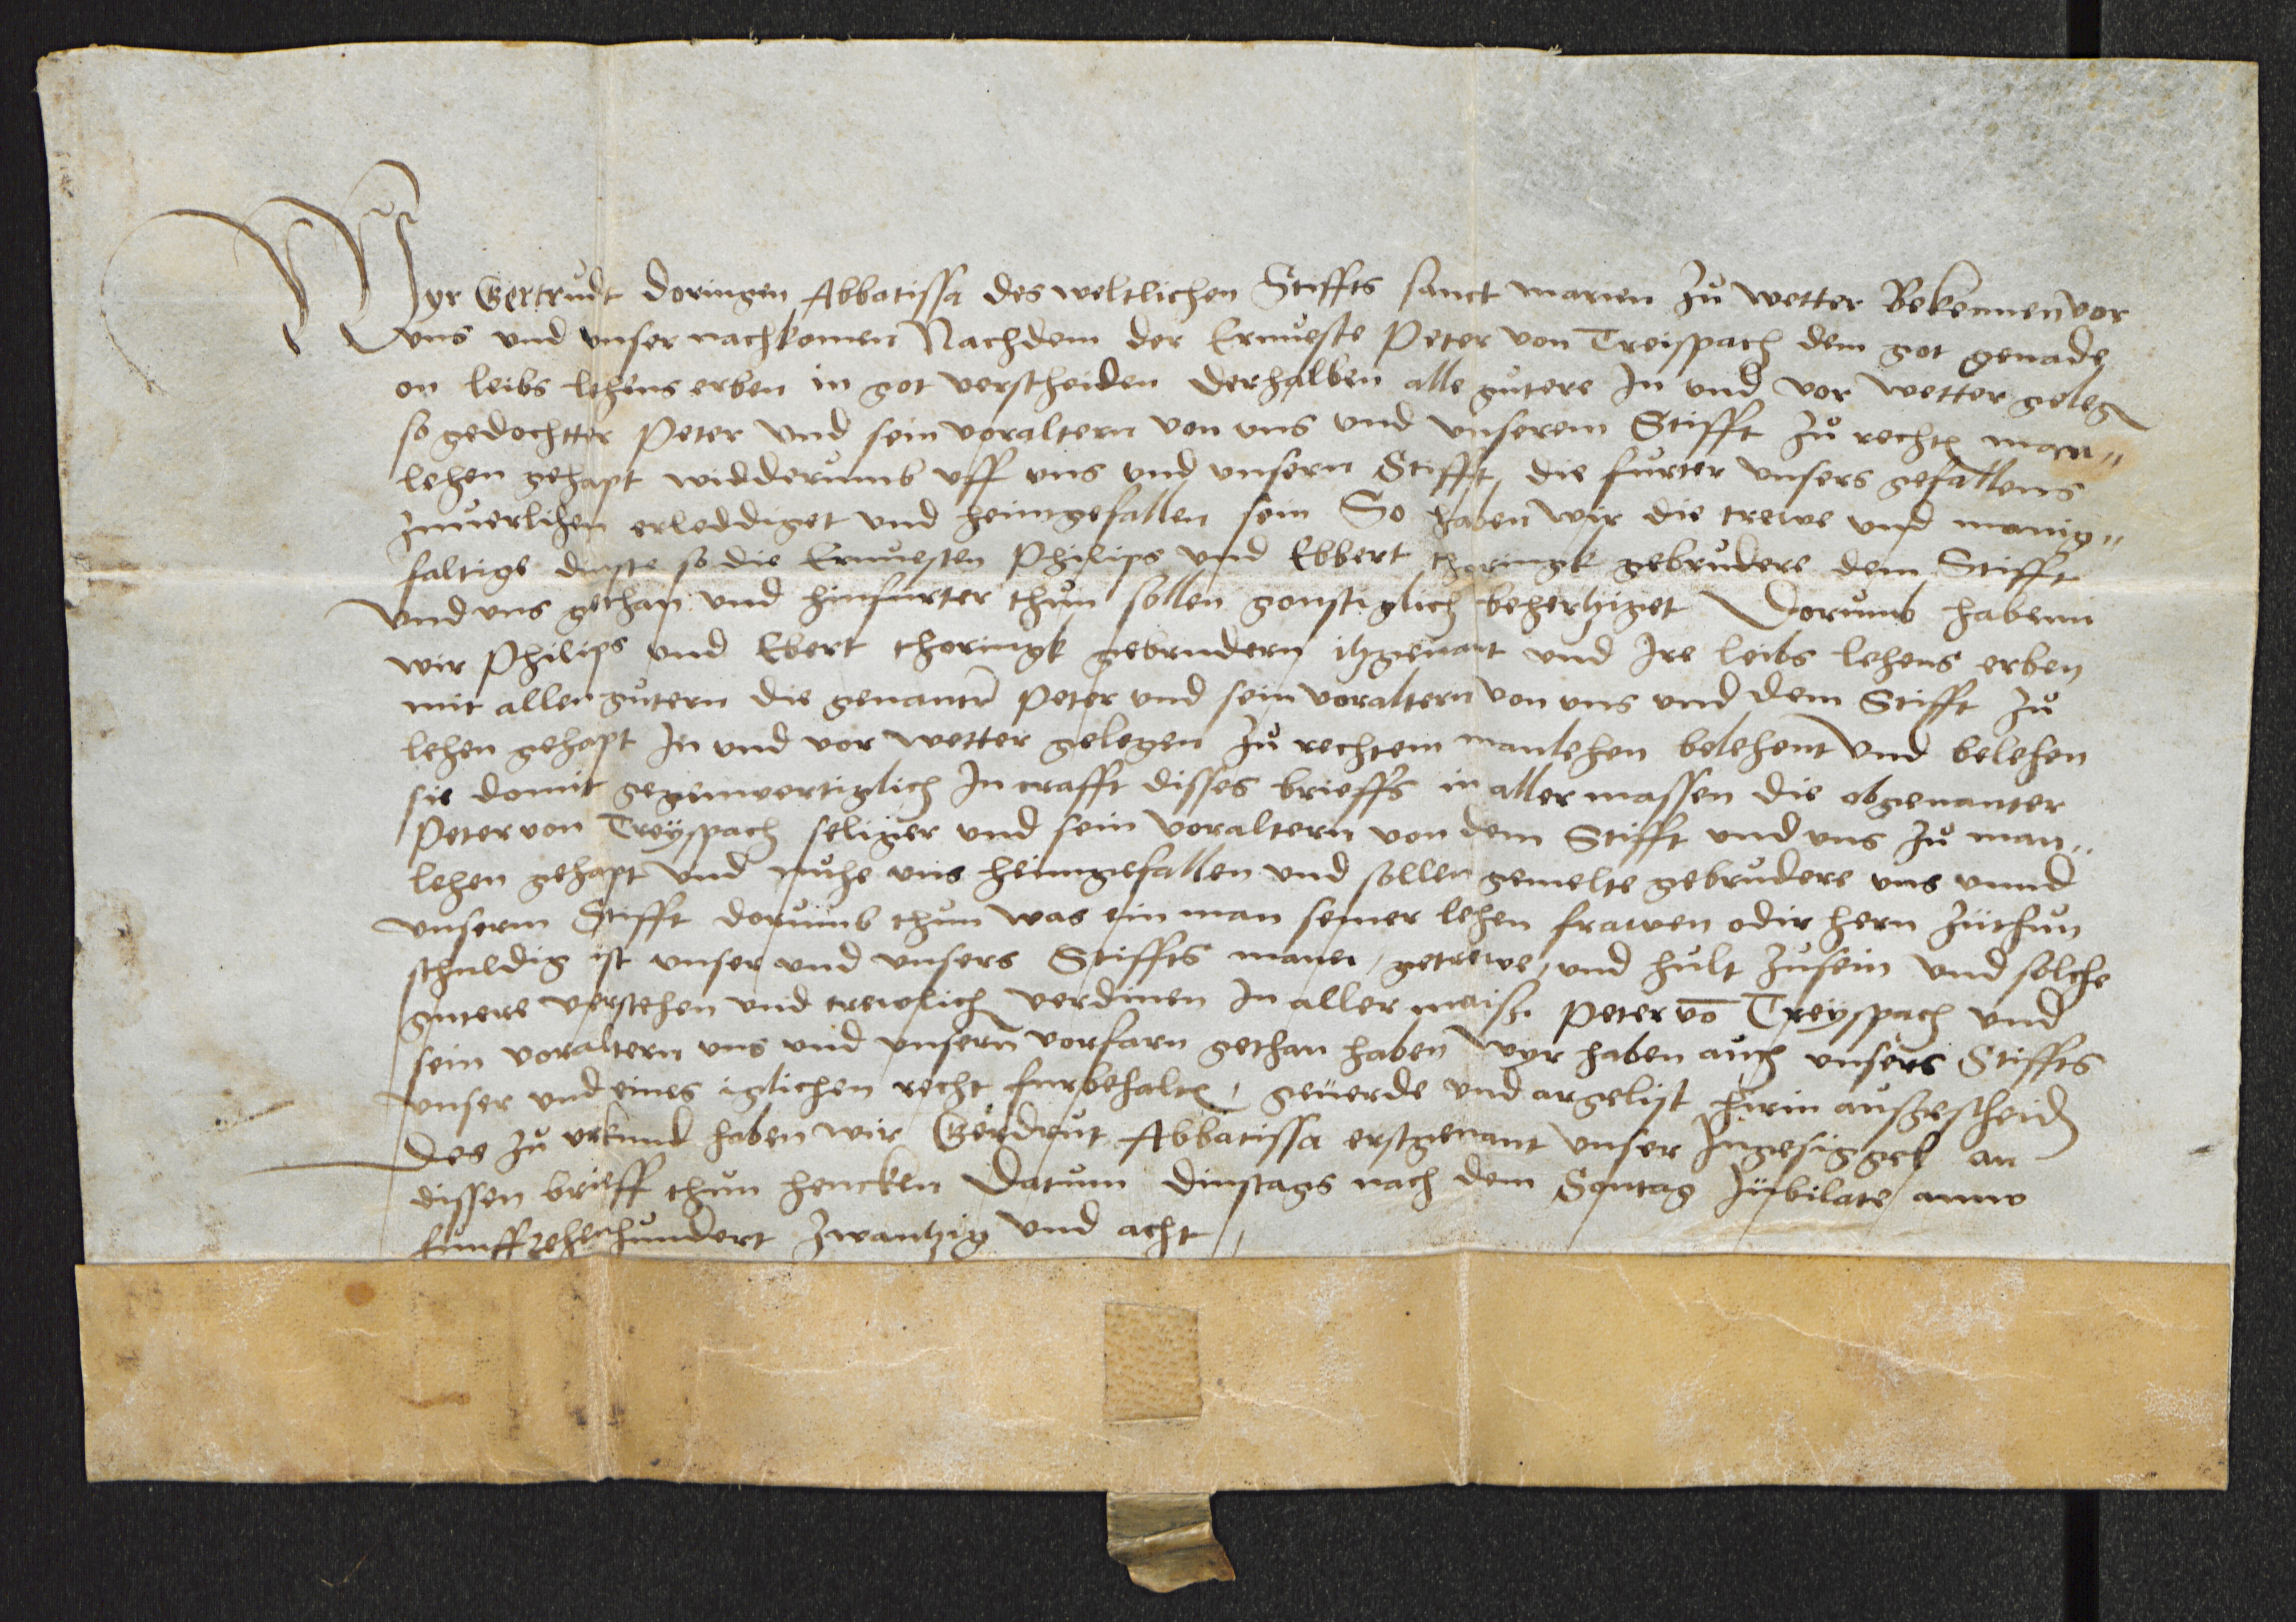 Wyr Gertrudt doringen Abbatissa des weltlichen Stiffts sanct marien zu wetter Bekennen vor
uns und unser nachkomen Nachdem der Ernveste Peter von Treispach dem got genade
on leibs lehens erben in got verscheiden derhalben alle gutere In und vor wetter geleg
so gedochtter Peter und sein voraltern von uns und unserem Stifft zu recht man„
lehen gehapt widderumb uff uns und unsern Stifft, die furter unsers gefallens
zuverlihen erleddiget und heimgefallen sein So haben wir die trewe und manig„
faltige dinste so die Ernvesten Philips und Ebbert thoringk gebrudere dem Stifft
und uns gethan und hinfurter thun sollen gonstiglich behertziget Dorumb habenn
wir Philips und Ebert thoringk gebrudern itzgenant und Ire leibs lehens erben
mit allen gutern die genantr Peter und sein voraltern von uns und dem Stifft zu
lehen gehapt In und vor wetter gelegen zu rechtem manlehen belehent und belehen
sie domit gegenwertiglich In crafft disses brieffs in aller massen die obgenanter
Peter von Treyspach seliger und sein voraltern von dem Stifft und uns zu man„
lehen gehapt und nuhe uns heimgefallen und sollen gemelte gebrudere uns unnd
unserm Stifft dorumb thun was ein man seiner lehen frawen odir hern zuthun
schuldig ist unser und unsers Stiffts mane, getrewe, und hult zusein und solche
gutere verstehen und trewlich verdinen In aller maiß Peter vo Treyspach und
sein voraltern uns und unsern vorfarn gethan haben Wyr haben auch unsers Stiffts
unser und eines iglichen recht furbehalt, geverde und argelist hirin außgescheid
Des zu urkund haben wir Gerdrut Abbatissa erstgenant unser Ingesiggel an
dissen brieff thun hencken Datum dinstags nach dem Sontag Jubilate anno
funffzehenhundert zwantzig und acht